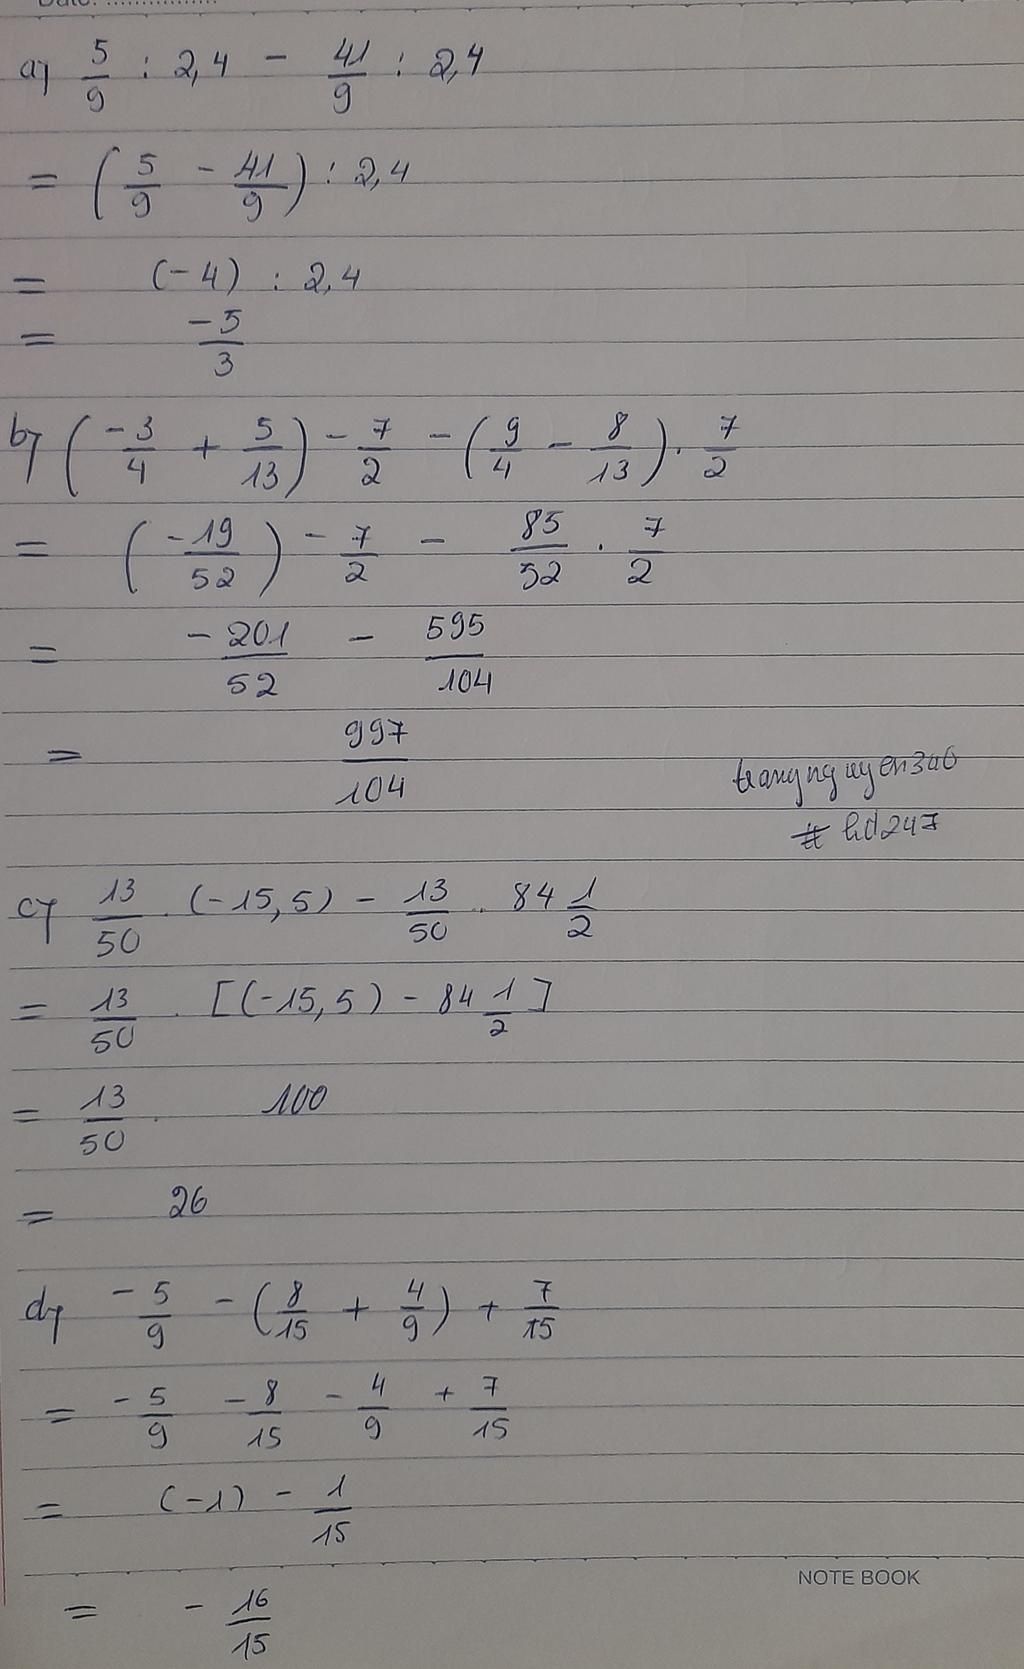 Date: ................
a) 5/9 : 2,4 - 41/9 : 2,4
= (5/9 - 41/9) : 2,4
= (-4) : 2,4
= -5/3
b) (-3/4 + 5/13) - 7/2 - (9/4 - 8/13) . 7/2
= (-19/52) - 7/2 - 85/52 . 7/2
= -201/52 - 595/104
= 997/104
# hd247
c) 13/50 . (-15,5) - 13/50 . 84 1/2
= 13/50 . [(-15,5) - 84 1/2]
= 13/50 . 100
= 26
d) -5/9 - (8/15 + 4/9) + 7/15
= -5/9 - 8/15 - 4/9 + 7/15
= (-1) - 1/15
= - 16/15
NOTE BOOK